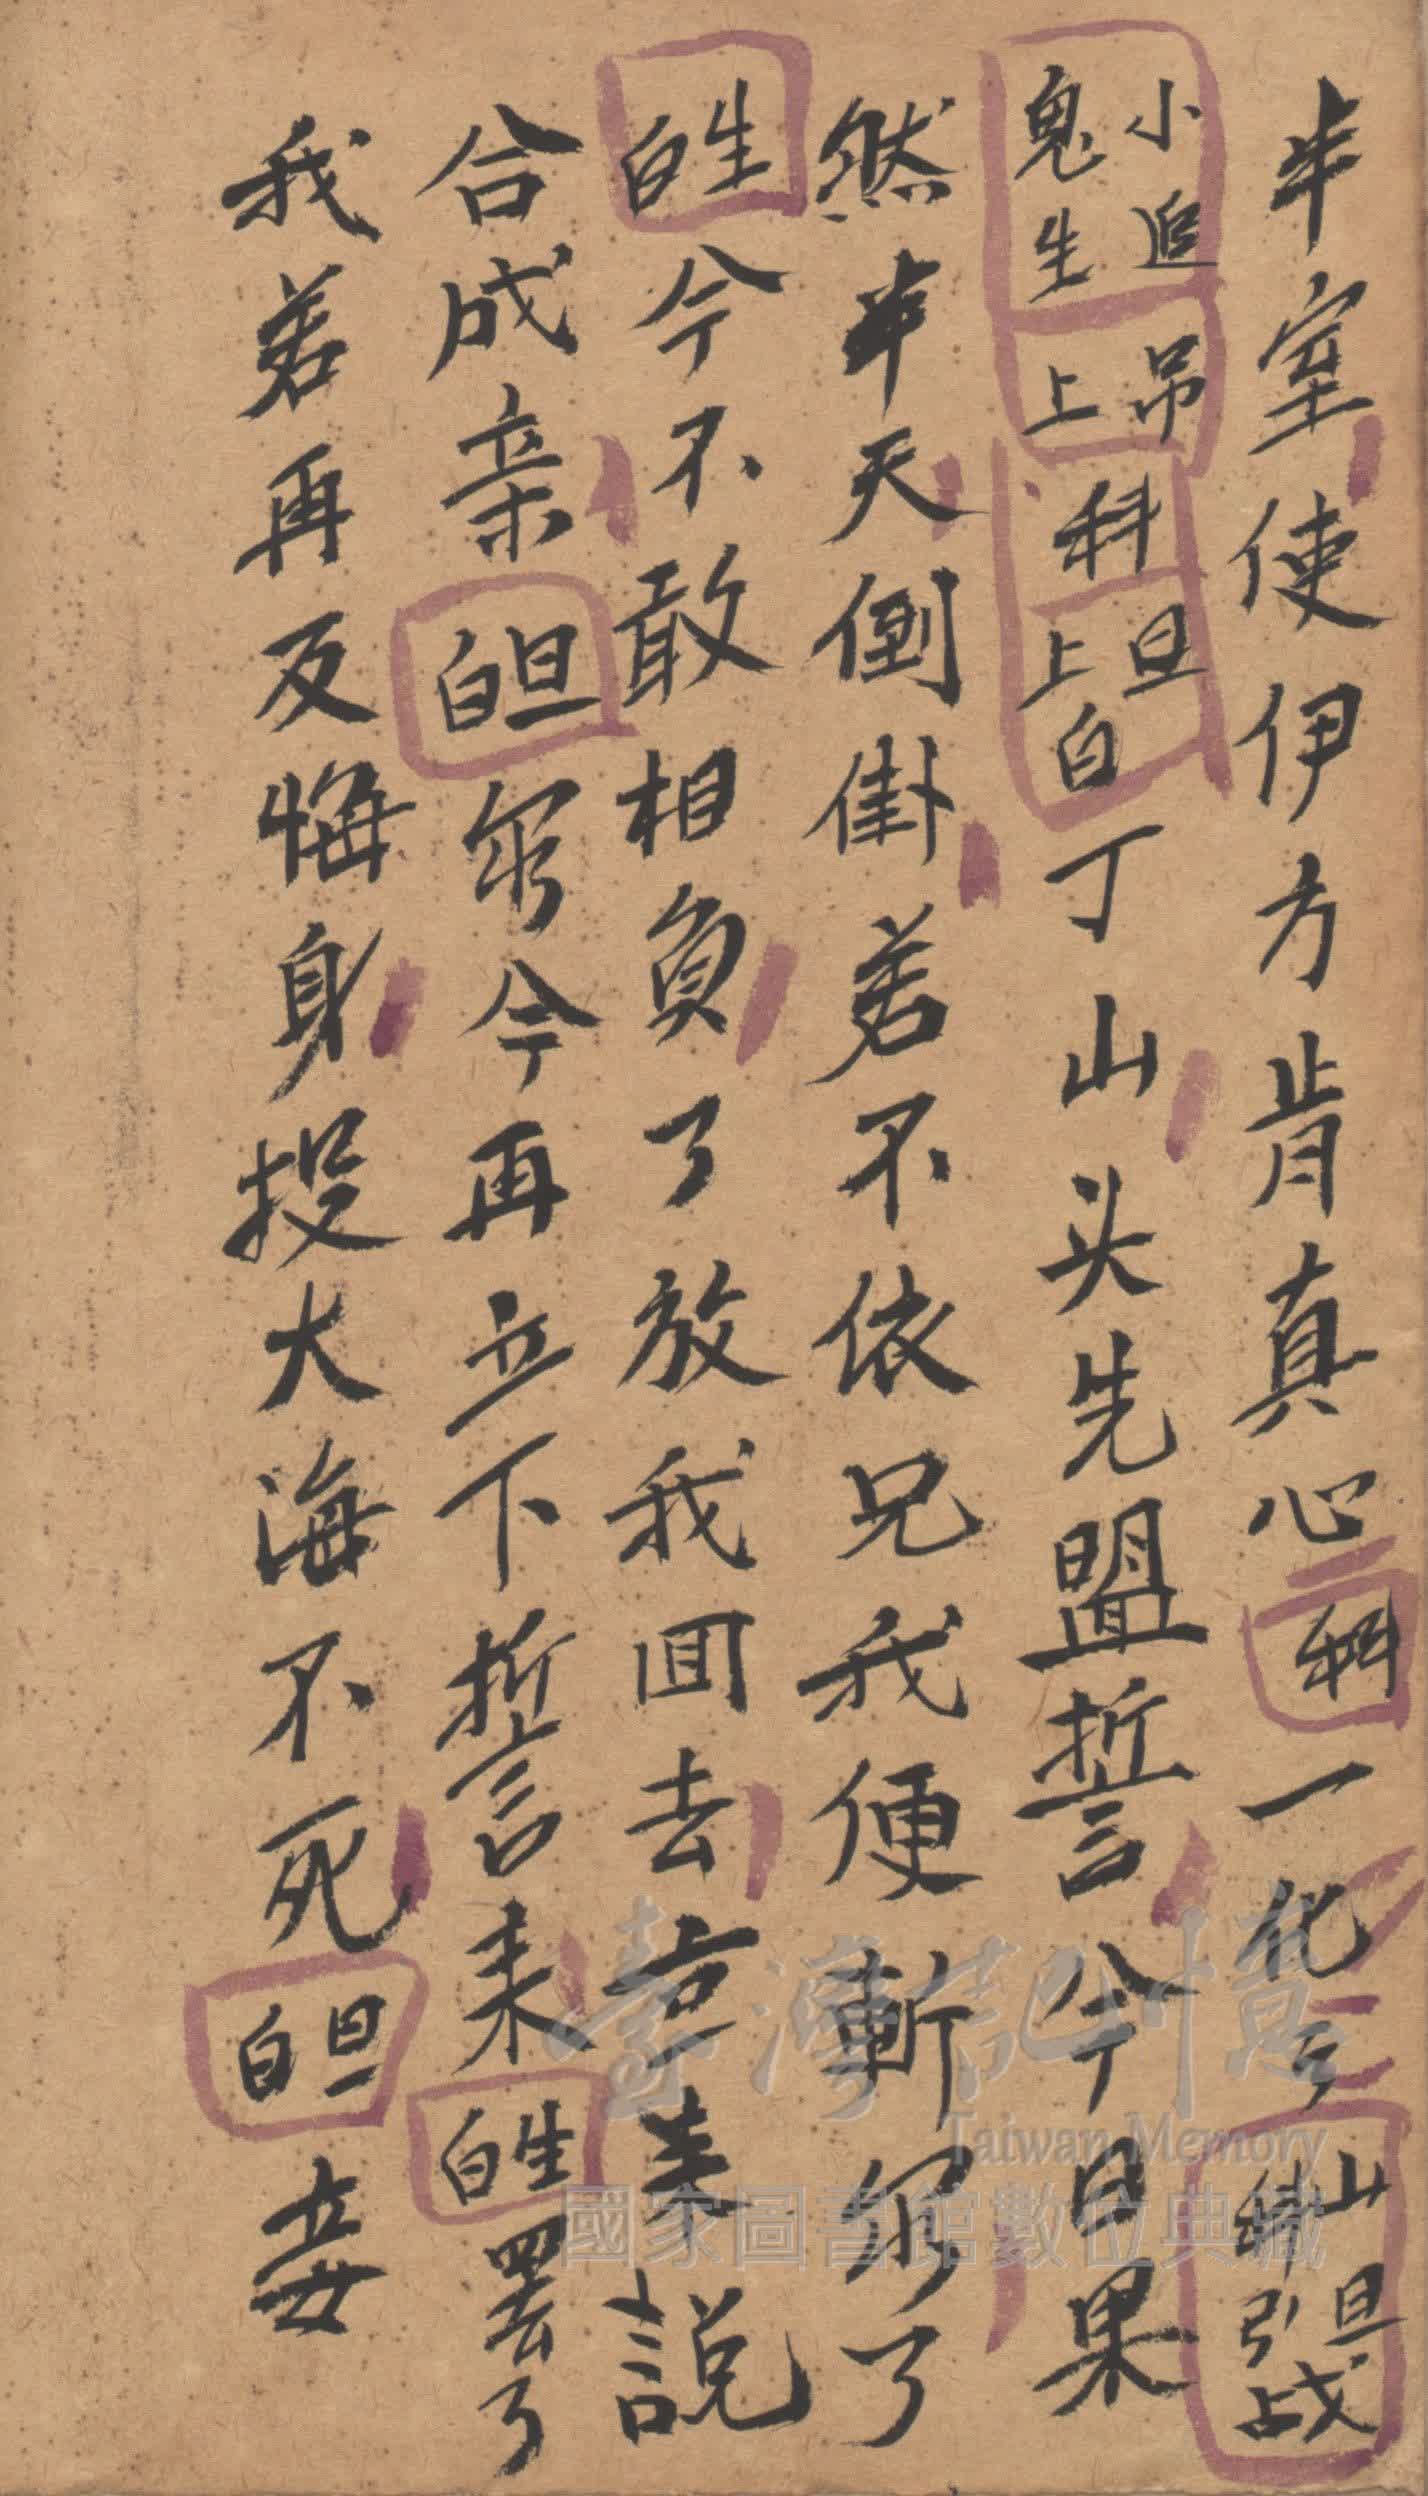 半室使伊方肯真心科一化兮山旦掛引战
小追鬼生吊上科旦上白丁山头先盟誓今日果
然半天倒掛若不依兄我便斬尔了
生白今不敢相負了放我回去言来說
合成亲旦白尔今再立下誓言来生白罢了
我若再反悔身投大海不死旦白妾
臺灣記憶
Taiwan Memory
國家圖書館數位典藏